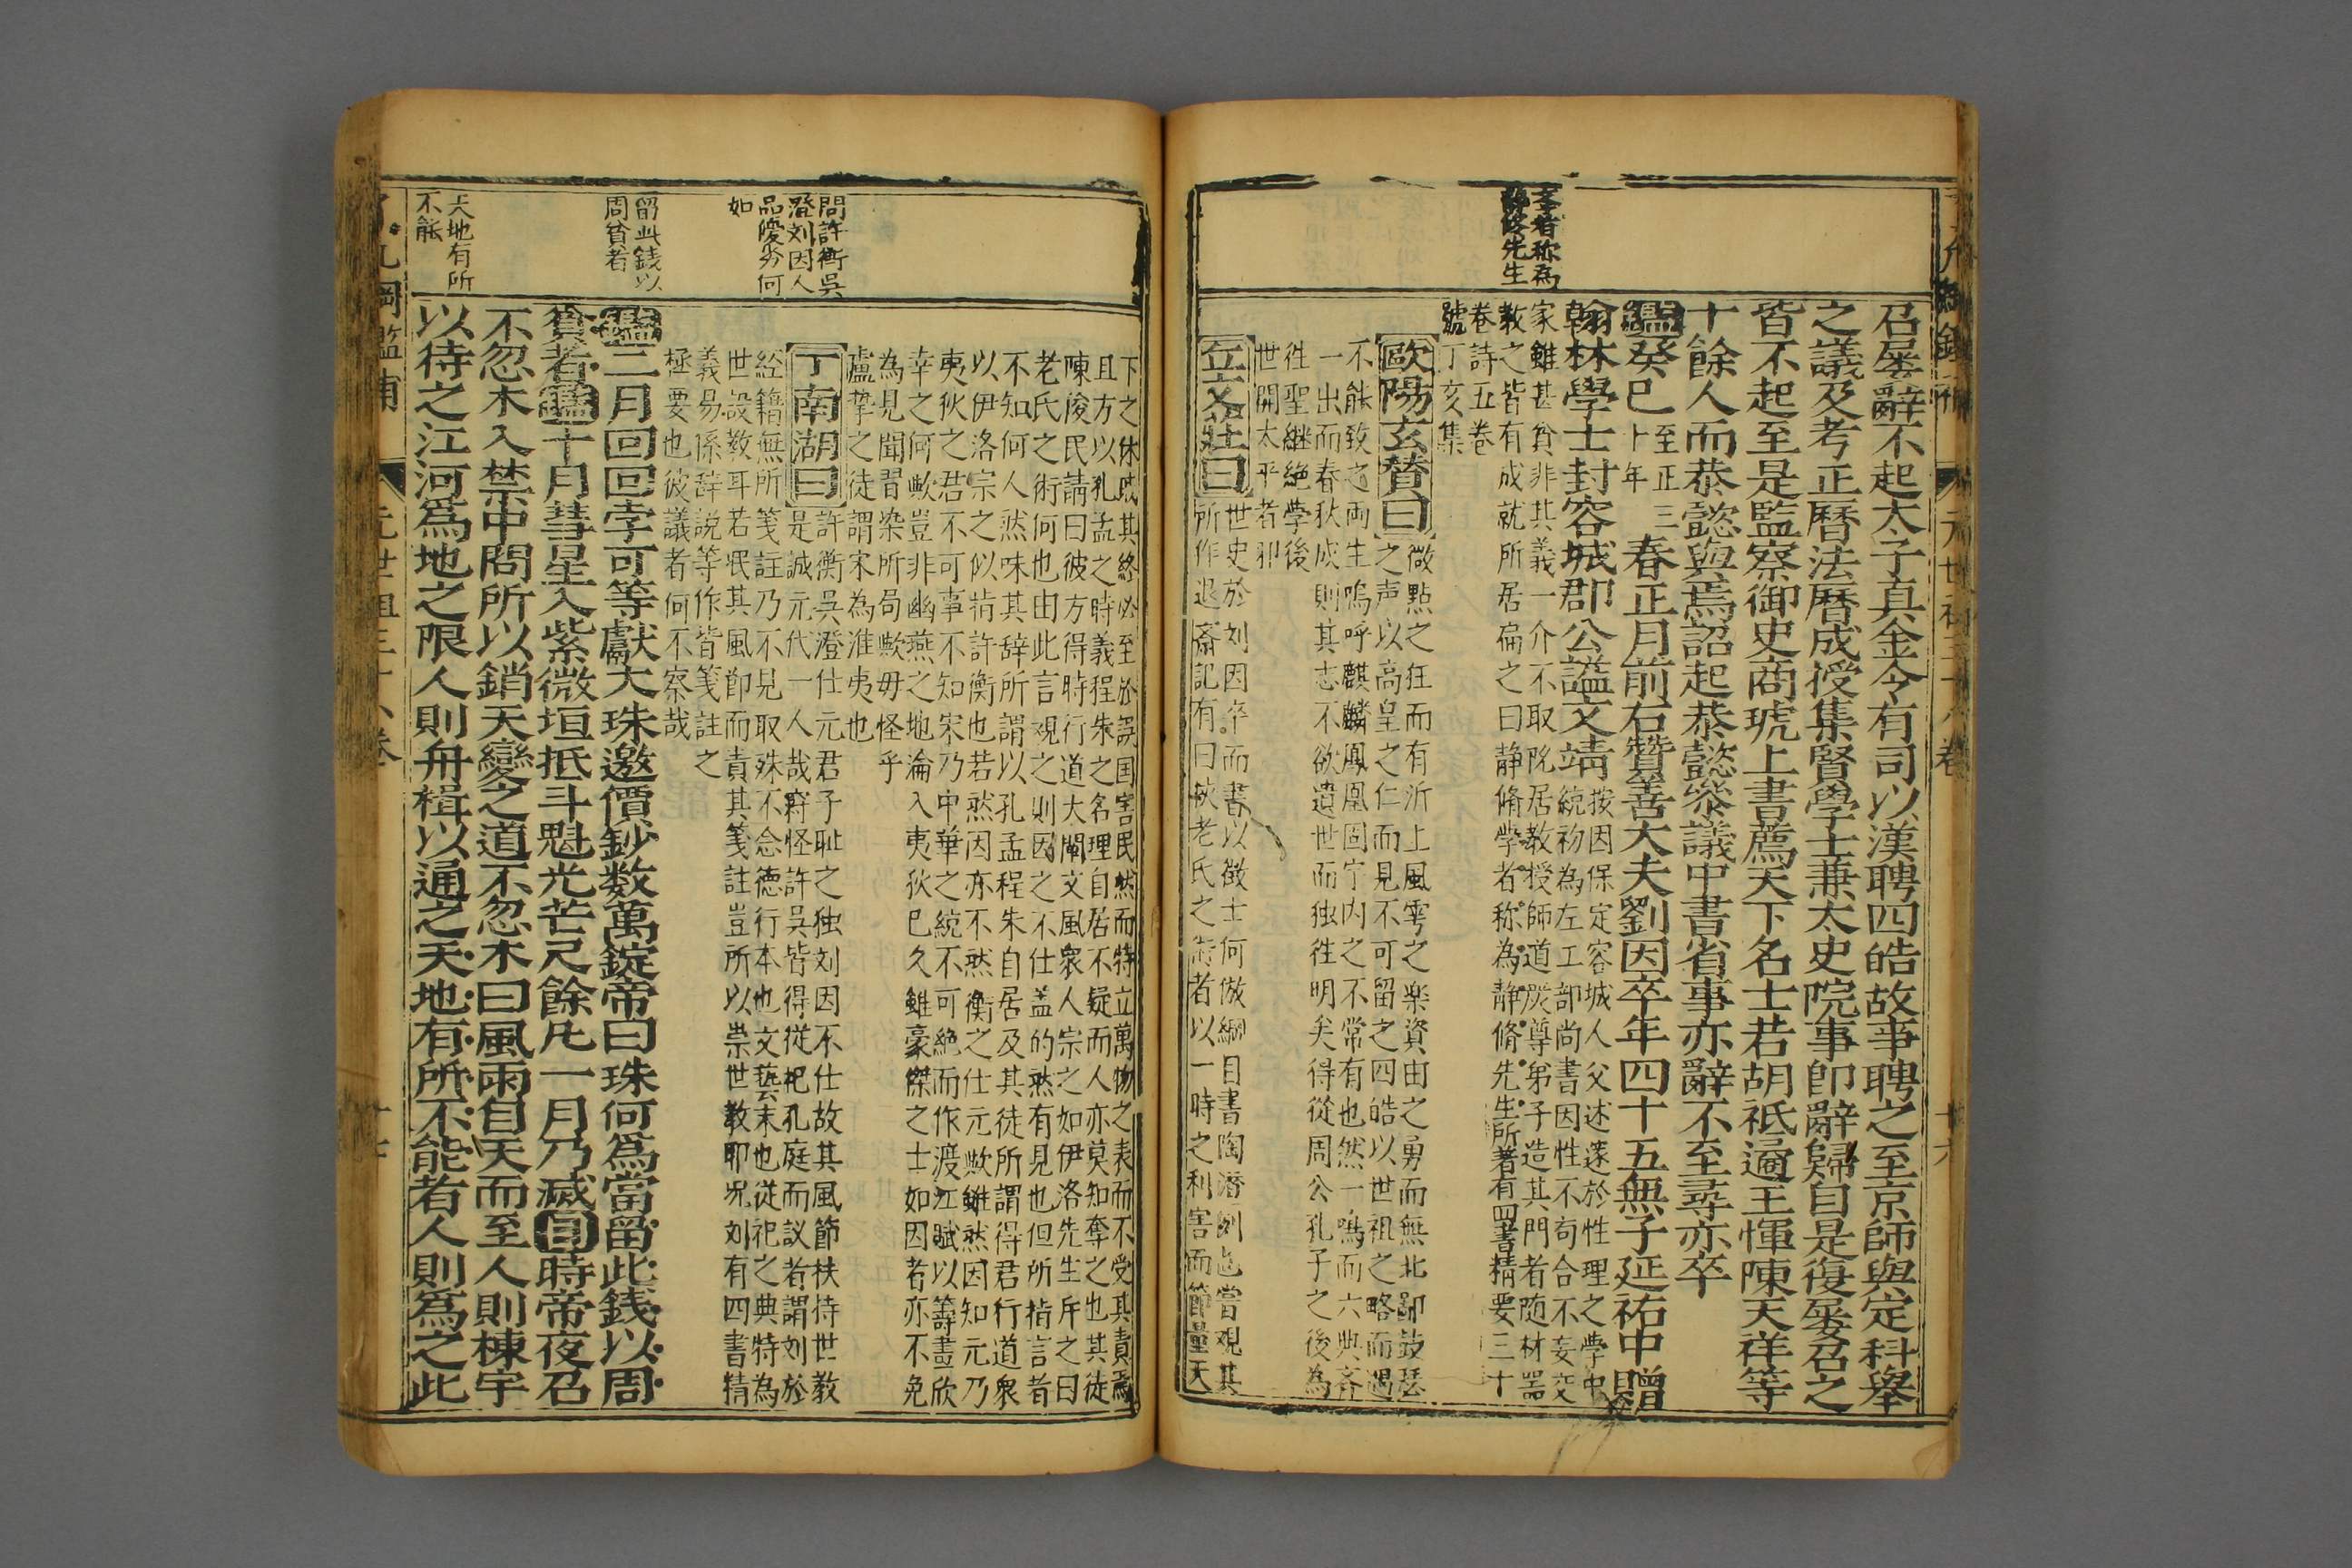 召屡辭不起太子真金令有司以漢聘四皓故事聘之至京師與定科舉
之議及考正曆法曆成授集賢學士兼太史院事卽辭歸自是復屡召之
皆不起至是監察御史商琥上書薦天下名士若胡祗遹王惲陳天祥等
十餘人而恭懿與焉詔起恭懿參議中書省事亦辭不至尋亦卒
鑑癸巳
至正三
十年
春正月前右贊善大夫劉因卒年四十五無子延祐中贈
翰林學士封容城郡公謚文靖
按因保定容城人父述邃於性理之學中
統初為左工部尚書因性不苟合不妄交
家雖甚貧非其義一介不取阮居教授師道嚴尊弟子造其門者随材噐
教之皆有成就所居偏之曰静脩學者称為静脩先生所著有四書精要三十
卷詩五卷
號丁亥集
李者称為
静修先生
歐陽玄賛曰
微點之狂而有沂上風雩之楽資由之勇而無北鄙鼓瑟
之声以高皇之仁而見不可留之四皓以世祖之略而遇
不能致之両生嗚呼麒麟鳳凰固宇内之不常有也然一鳴而六典斉
一出而春秋成則其志不欲遺世而独徃明矣得從周公孔子之後為
徃聖継絶學後
世開太平者耶
丘文莊曰
世史於刘因卒而書以徴士何倣綱目書陶潜例也嘗观其
所作退斎記有曰挾老氏之術者以一時之利害而節量天
下之休戚其終必至於誤国害民然而特立萬物之表而不受其責焉
且方以孔孟之時義程朱之名理自居不疑而人亦莫知奪之也其徒
陳俊民請曰彼方得時行道大闡文風衆人宗之如伊洛先生斥之曰
老氏之術何也由此言观之則因之不仕盖的然有見也但所指言者
不知何人然味其辞所謂以孔孟程朱自居及其徒所謂得君行道衆
以伊洛宗之似指許衡也若然因亦不然衡之仕元歟雖然因知元乃
夷狄之君不可事不知宋乃中華之統不可絶而作渡江賦以籌畫欣
幸之何歟豈非幽燕之地淪入夷狄已久雖豪傑之士如因者亦不免
為見聞習染所局歟毋怪乎
盧摯之徒謂宋為淮夷也
丁南湖曰
許衡吳澄仕元君子耻之独刘因不仕故其風節扶持世教
是誠元代一人哉窃怪許吳皆得從祀孔庭而議者謂刘於
経籍無所箋註乃不見取殊不念德行本也文藝末也從祀之典特為
世設教耳若泯其風節而責其箋註豈所以崇世教耶况刘有四書精
義易係辞説等作皆箋註之
極要也彼議者何不察哉
問許衡吳
澄刘因人
品優劣何
如
鑑二月回回孛可等獻大珠邀價鈔数萬錠帝曰珠何爲當留此錢以周
貧者鑑十月彗星入紫微垣抵斗魁光芒尺餘凡一月乃滅目時帝夜召
不忽木入禁中問所以銷天變之道不忽木曰風雨自天而至人則棟宇
以待之江河爲地之限人則舟楫以通之天地有所不能者人則爲之此
留此錢以
周貧者
天地有所
不能